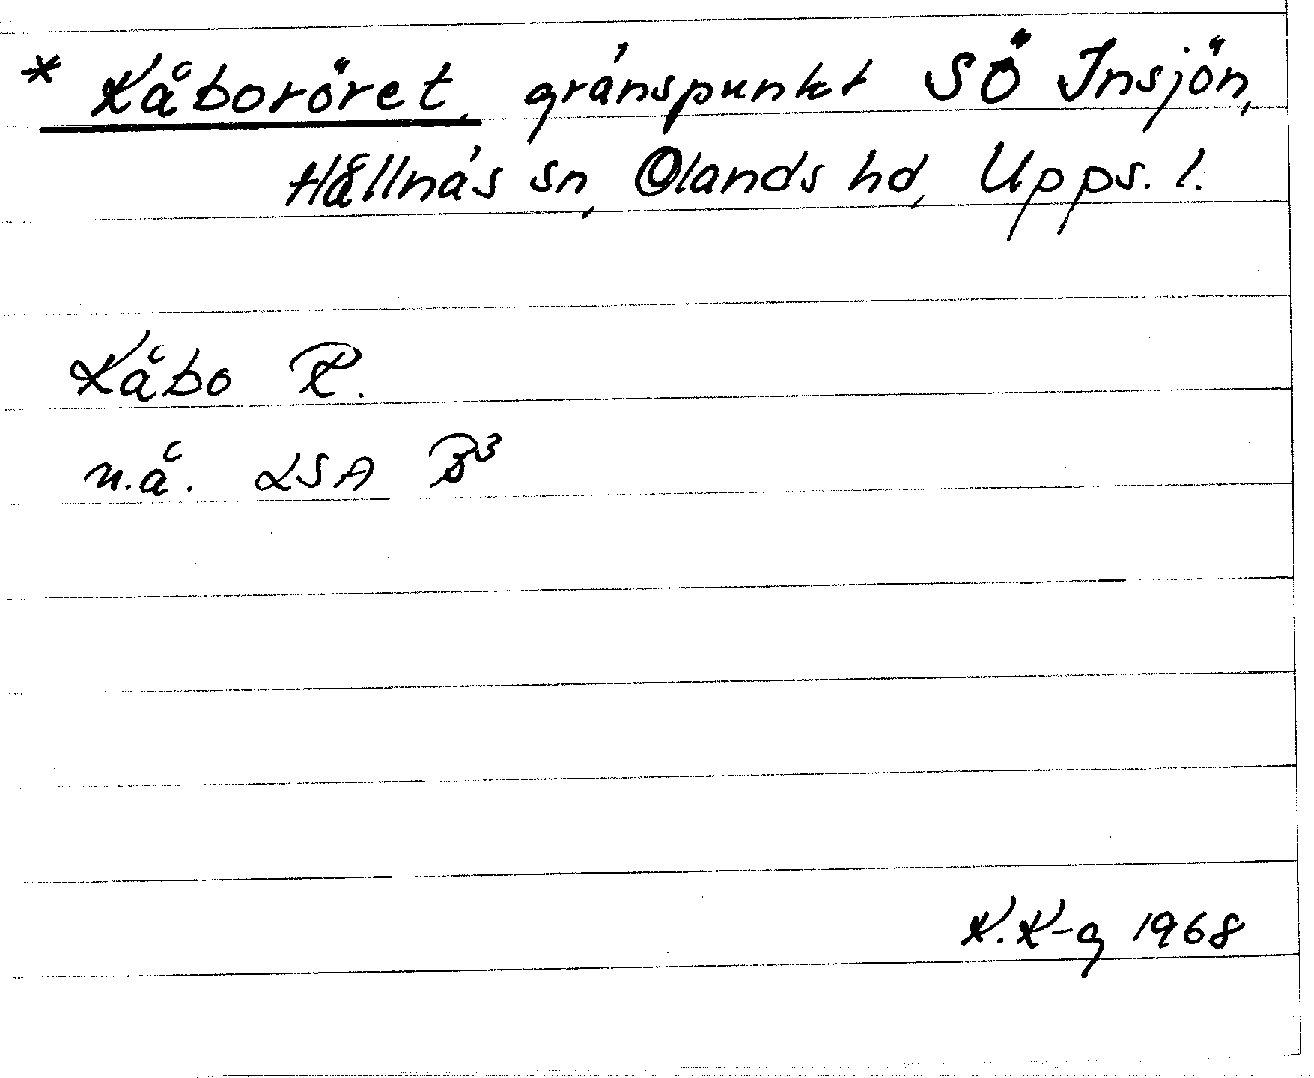 * Kåboröret, gränspunkt SÖ Insjön,
Hållnäs sn, Olands hd, Upps. l.
Kåbo R.
n.å. LSA B³
K.K-g 1968